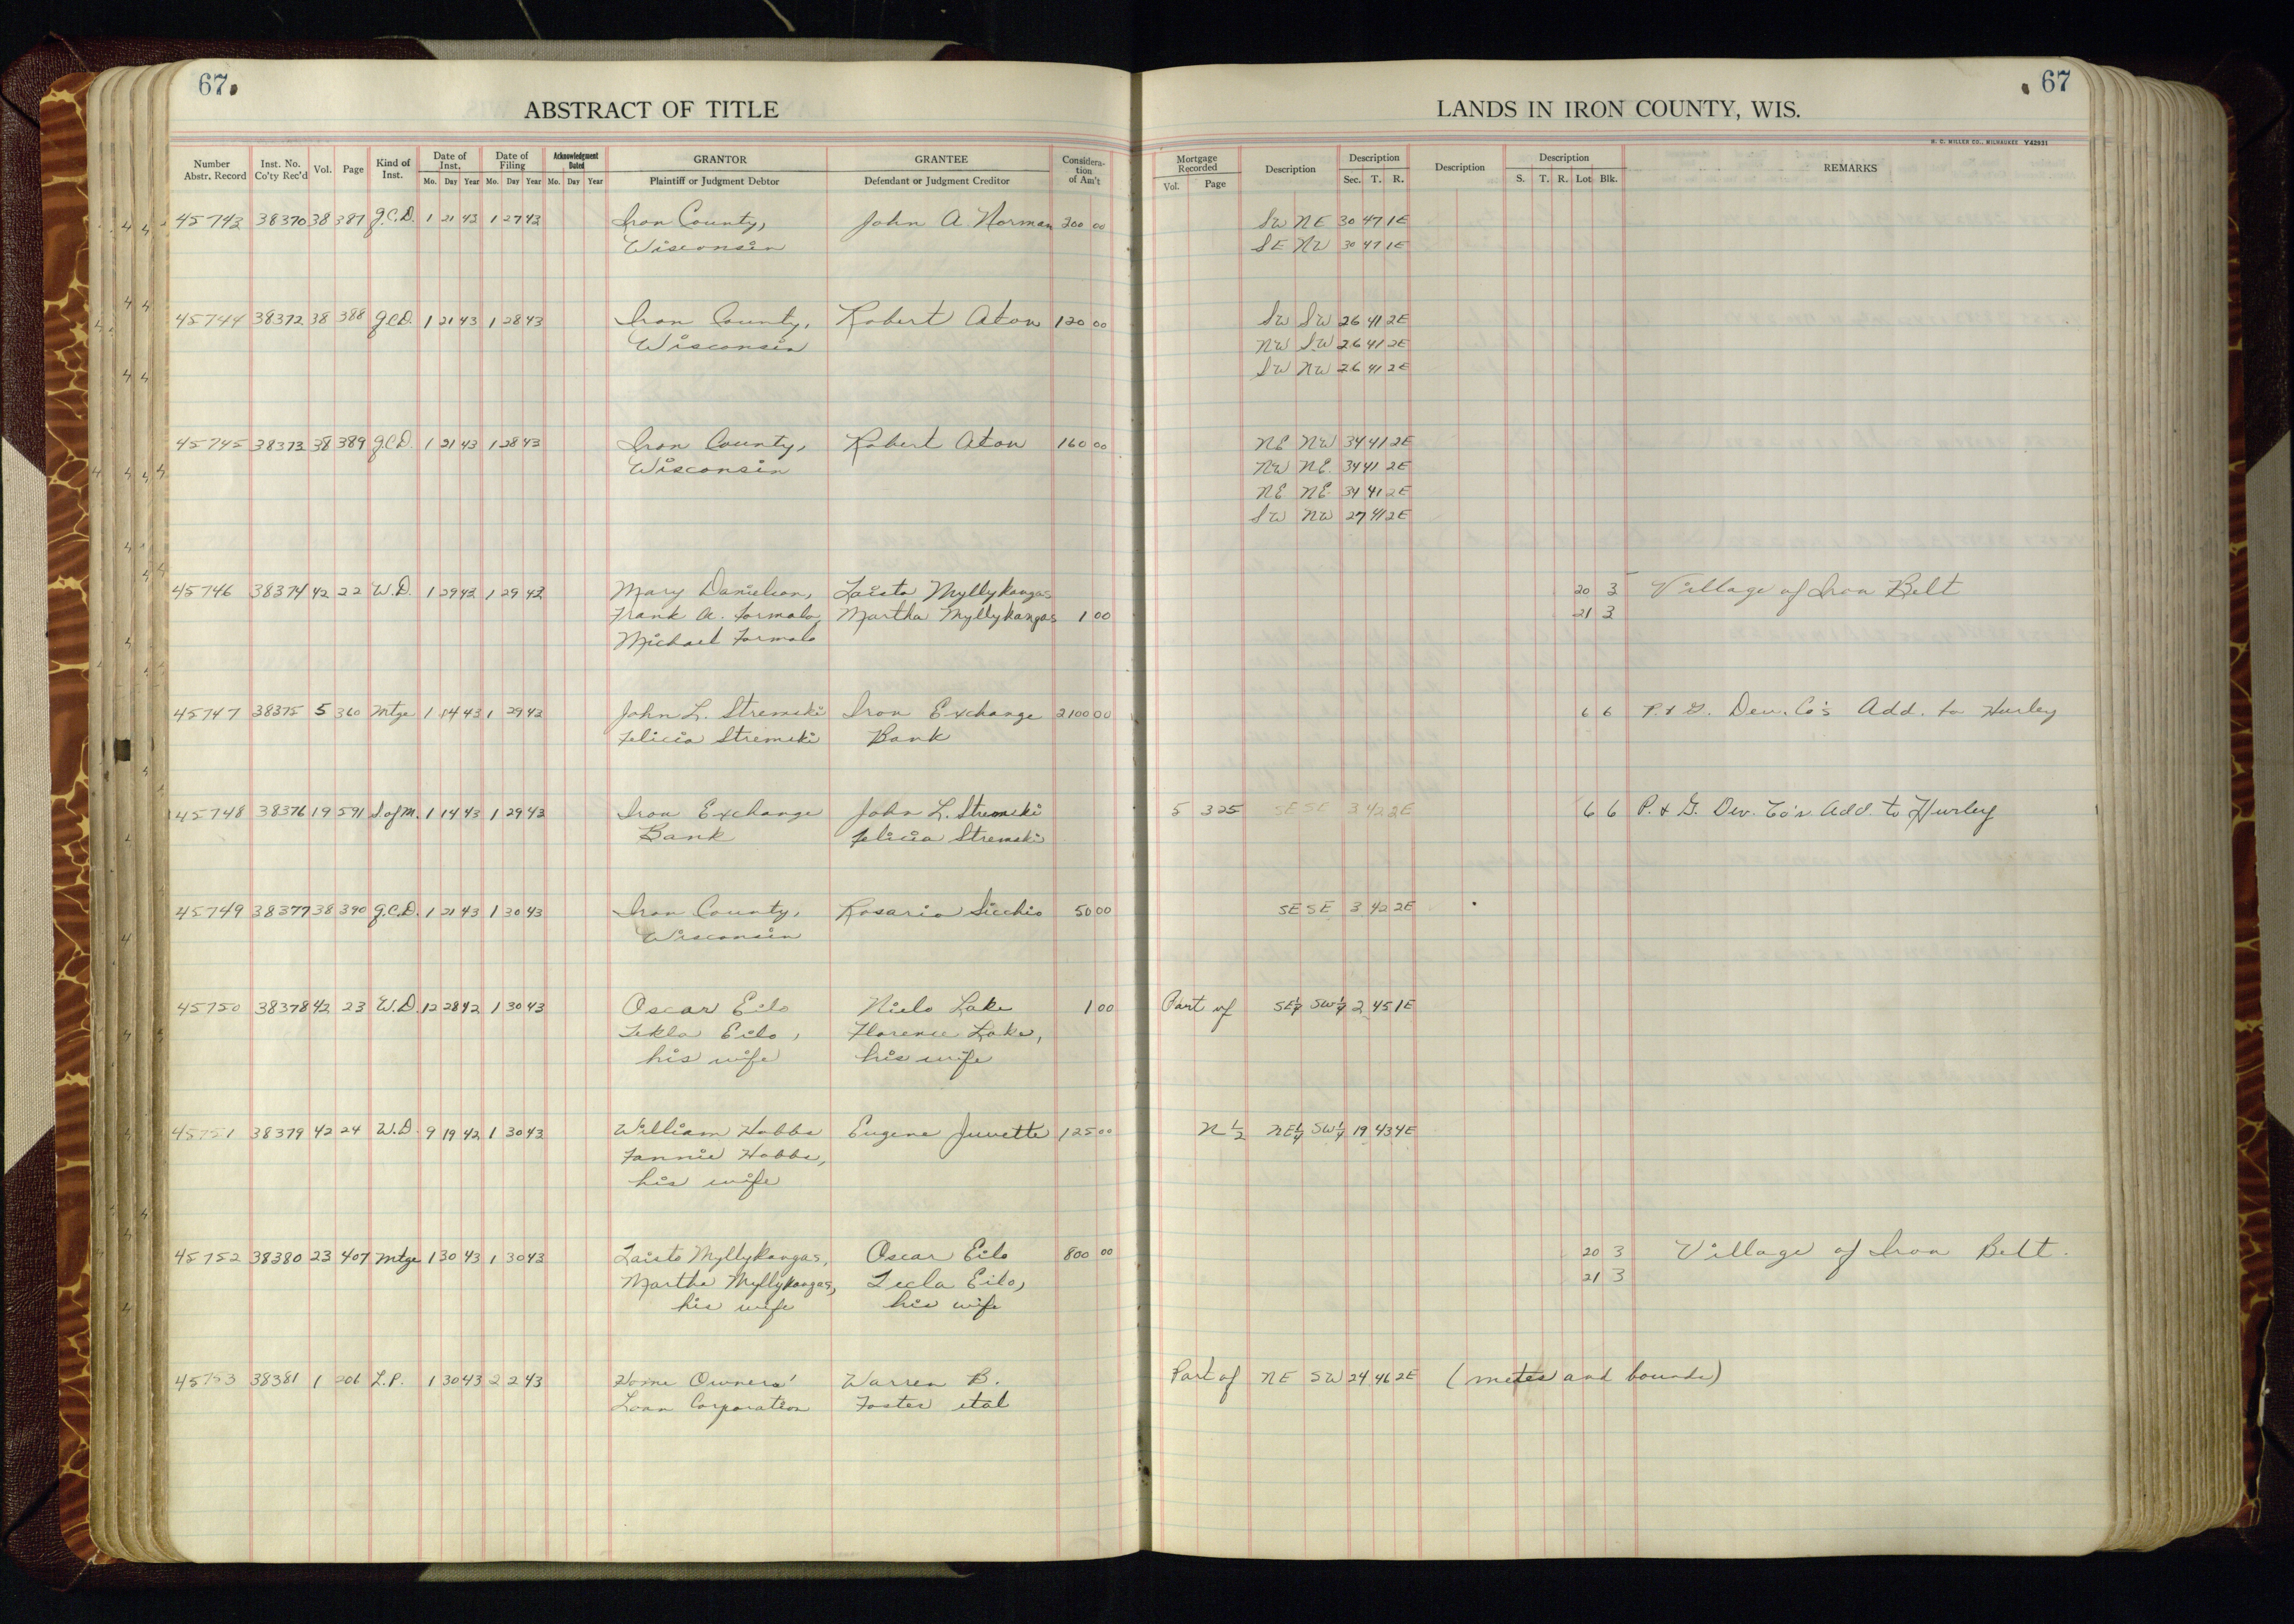 67 67
ABSTRACT OF TITLE LANDS IN IRON COUNTY, WIS.
H. C. MILLER CO., MILWAUKEE Y42931
Number Abstr. Record Inst. No. Co'ty Rec'd Vol. Page Kind of Inst. Date of Inst. Mo. Day Year Date of Filing Mo. Day Year Acknowledgment Dated Mo. Day Year GRANTOR Plaintiff or Judgment Debtor GRANTEE Defendant or Judgment Creditor Considera-tion of Am't Mortgage Recorded Vol. Page Description Description Sec. T. R. Description Description S. T. R. Lot Blk. REMARKS
45743 38370 38 387 Q.C.D. 1 21 43 1 27 43 Iron County, John A. Norman 200 00 SW NE 30 47 1E
Wisconsin SE NW 30 47 1E
45744 38372 38 388 Q.C.D. 1 21 43 1 28 43 Iron County, Robert Aton 120 00 SW SW 26 41 2E
Wisconsin NW SW 26 41 2E
SW NW 26 41 2E
45745 38373 38 389 Q.C.D. 1 21 43 1 28 43 Iron County, Robert Aton 160 00 NE NW 34 41 2E
Wisconsin NW NE 34 41 2E
NE NE 34 41 2E
SW NW 27 41 2E
45746 38374 42 22 W.D. 1 29 43 1 29 43 Mary Danielson, Taisto Myllykangas 20 3 Village of Iron Belt
Frank A. Formalo, Martha Myllykangas 1 00 21 3
Michael Formalo
45747 38375 5 360 Mtge 1 14 43 1 29 43 John L. Stremski Iron Exchange 2100 00 6 6 P. & G. Dev. Co's Add. to Hurley
Felicia Stremski Bank
45748 38376 19 591 S.ofM. 1 14 43 1 29 43 Iron Exchange John L. Stremski 5 325 SE SE 3 42 2E 6 6 P. & G. Dev. Co's. Add. to Hurley
Bank Felicia Stremski
45749 38377 38 390 Q.C.D. 1 21 43 1 30 43 Iron County, Rosario Sicchio 50 00 SE SE 3 42 2E
Wisconsin
45750 38378 42 23 W.D. 12 28 42 1 30 43 Oscar Eilo Nielo Lake 1 00 Part of SE¼ SW¼ 2 45 1E
Tekla Eilo, Florence Lake,
his wife his wife
45751 38379 42 24 W.D. 9 19 42 1 30 43 William Hobbs Eugene Juvette 125 00 N ½ NE¼ SW¼ 19 43 4E
Fannie Hobbs,
his wife
45752 38380 23 407 Mtge 1 30 43 1 30 43 Taisto Myllykangas, Oscar Eilo 800 00 20 3 Village of Iron Belt.
Martha Myllykangas, Tecla Eilo, 21 3
his wife his wife
45753 38381 1 206 L.P. 1 30 43 2 2 43 Home Owners' Warren B. Part of NE SW 24 46 2E (metes and bounds)
Loan Corporation Foster et al